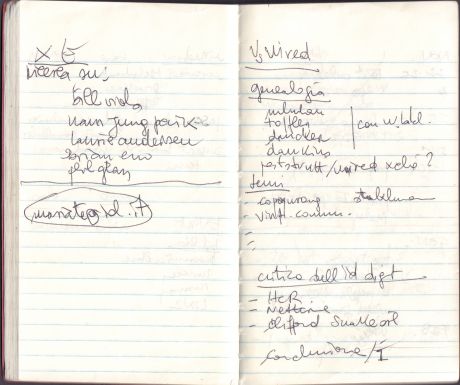 X E
ricerca su:
bill viola
nam jung paik
laurie anderson
brian eno
phil glass
Vs wired
genealogia
mluhan
toffler
drucker
dawkins
poststrutt/wired xchè?
temi
- copyright
- virt. comm.
-
-
critica dell'id digit
- HCR
- Nettime
- Clifford
conclusione/I